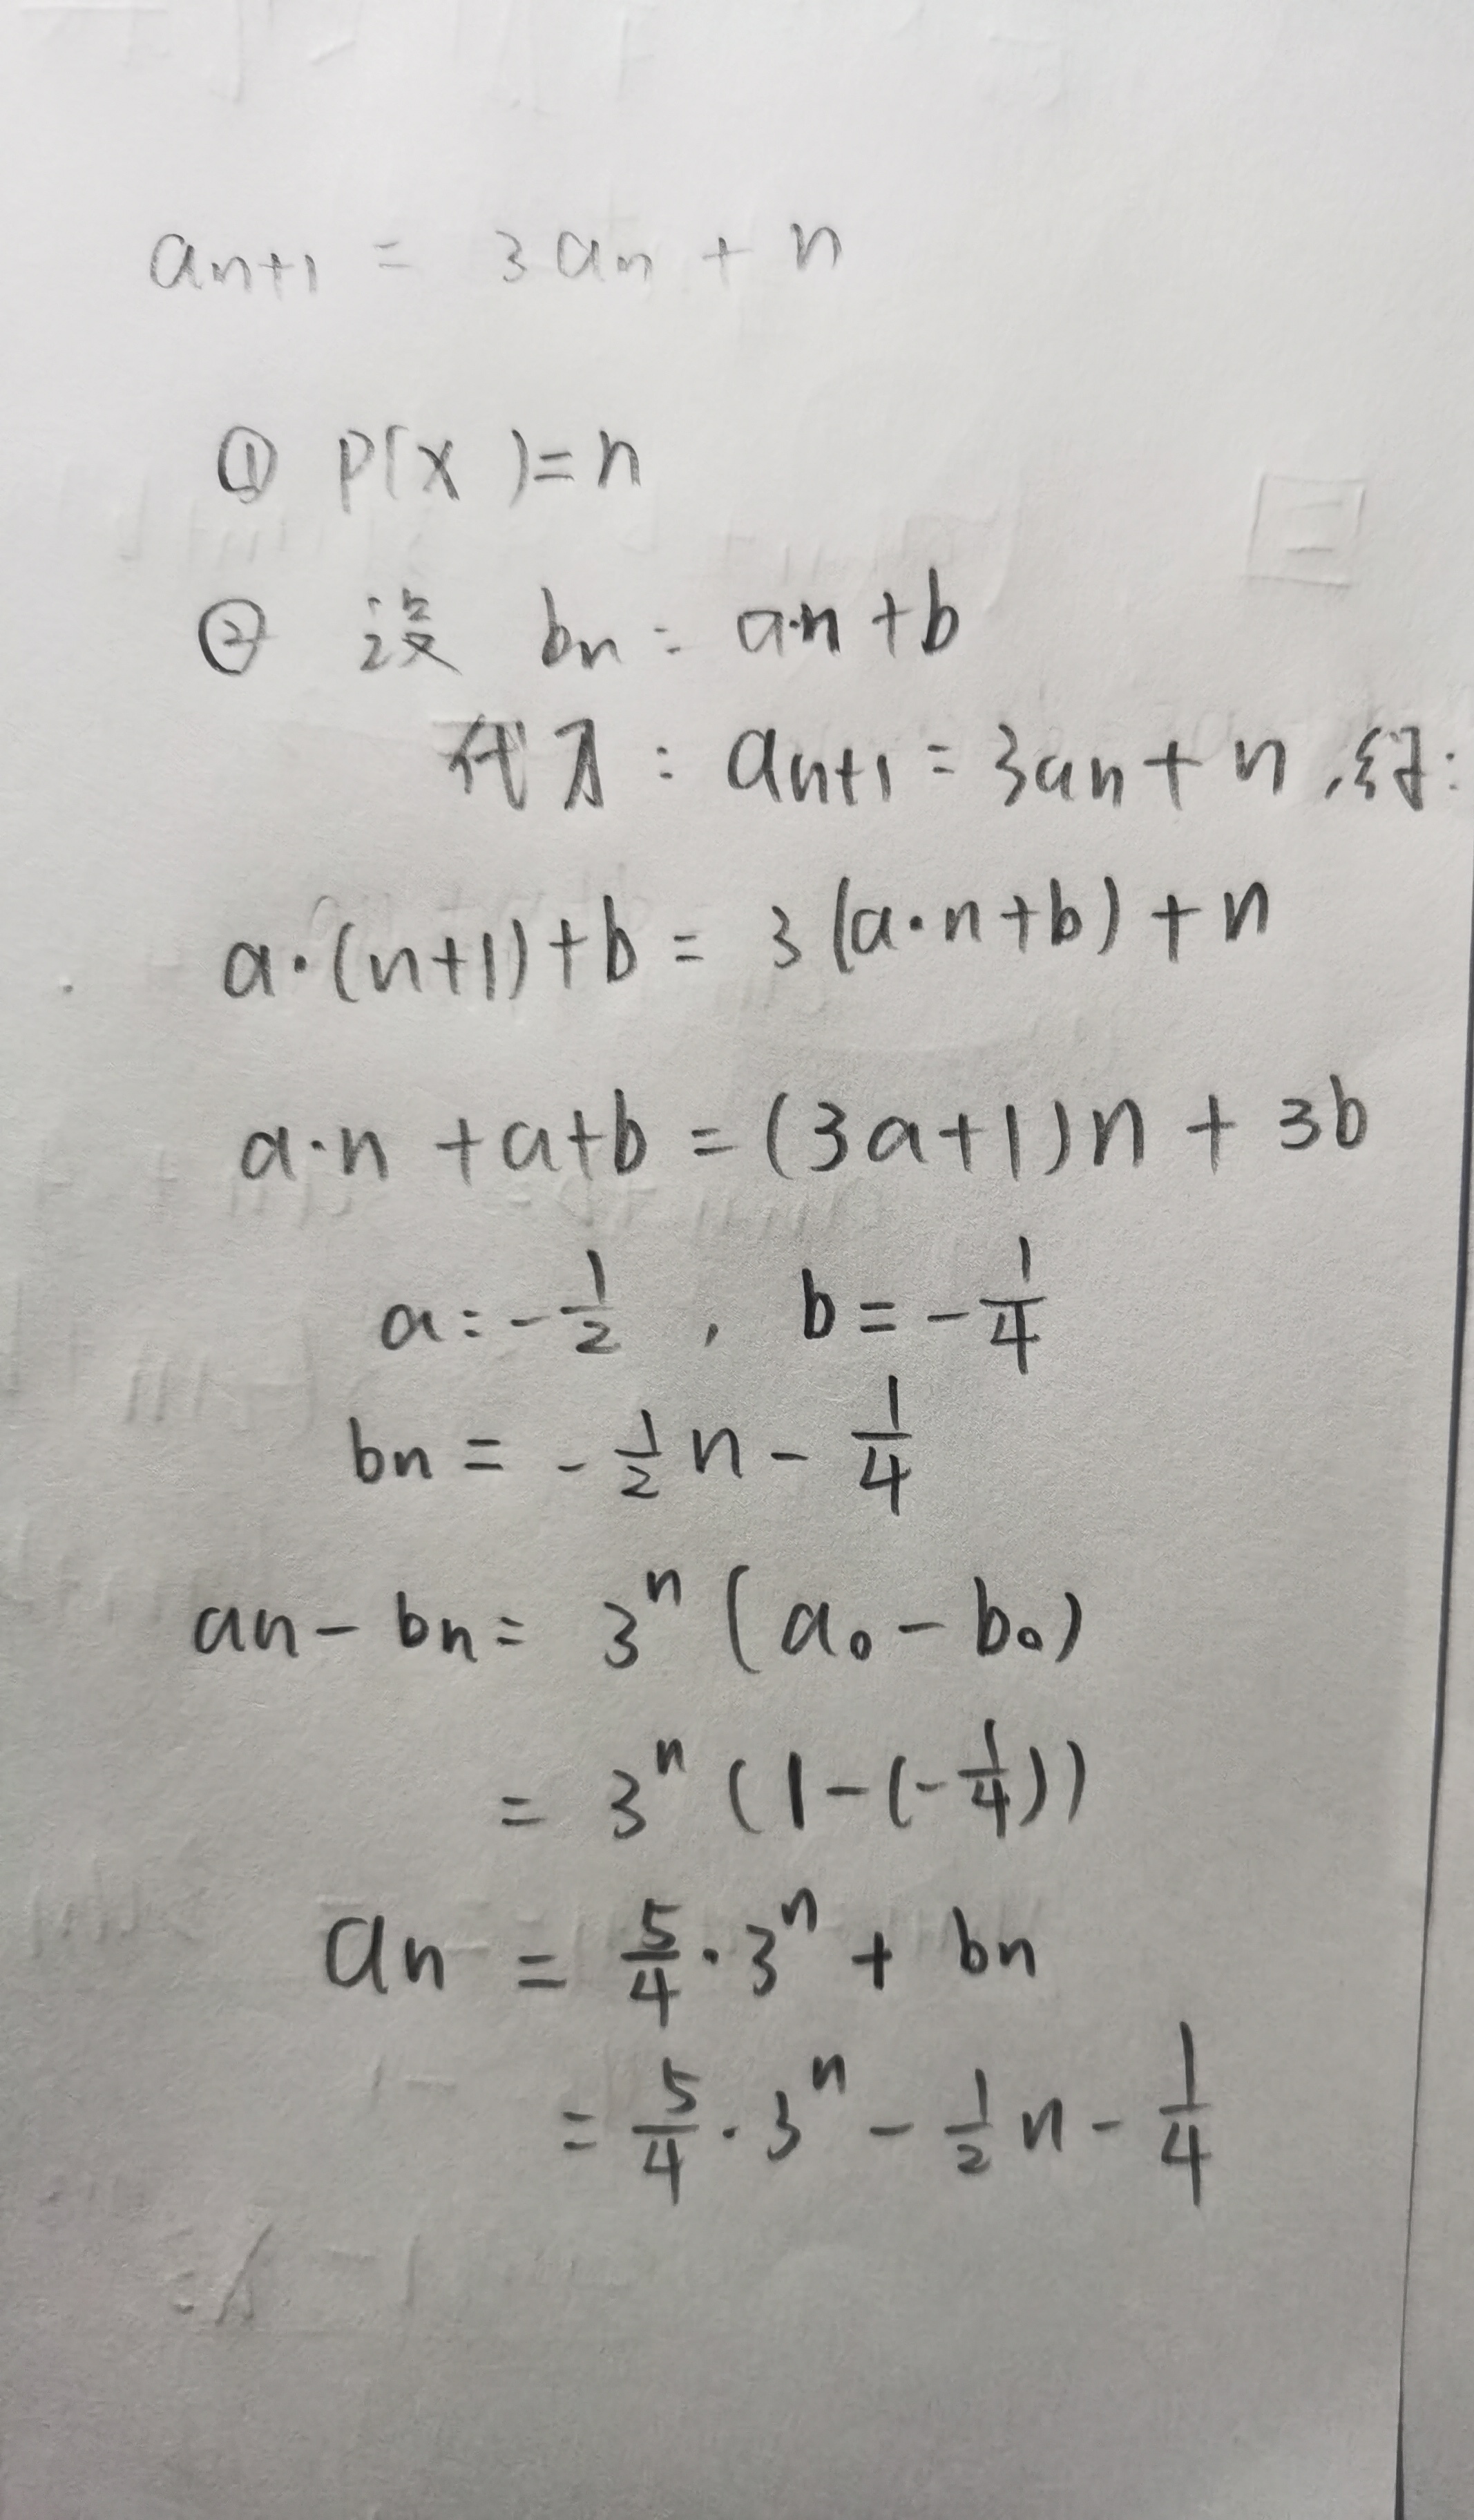 an+1 = 3an + n
① P(x)=n
② 设 bn = a·n+b
代入: an+1 = 3an + n, 得:
a·(n+1)+b = 3(a·n+b)+n
a·n +a+b = (3a+1)n + 3b
a=-1/2, b=-1/4
bn = -1/2n - 1/4
an - bn = 3^n (a0 - b0)
= 3^n (1-(-1/4))
an = 5/4·3^n + bn
= 5/4·3^n - 1/2n - 1/4